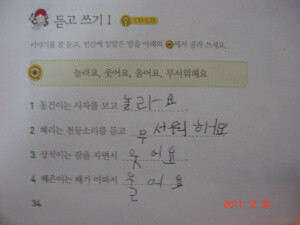 듣고 쓰기 1
이야기를 잘 듣고, 빈칸에 알맞은 말을 아래의 에서 골라 쓰세요.
놀라요, 웃어요, 울어요, 무서워해요
1 동건이는 사자를 보고 놀라요
2 혜리는 천둥소리를 듣고 무서워하어요
3 상적이는 잠을 자면서 웃어요
4 혜은이는 배가 아파서 울어요
34